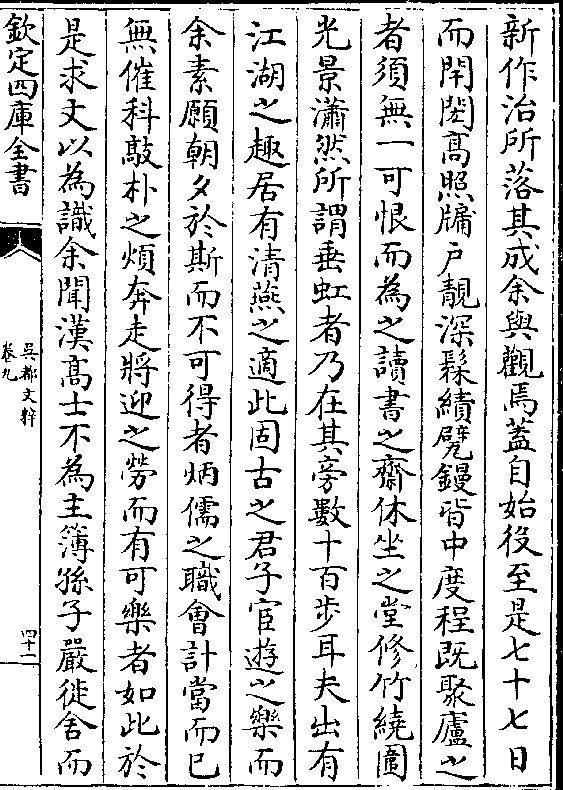 新作治所落其成余與觀焉蓋自始役至是七十七日
而閈閎髙照牖户靚深髹績甓鏝皆中度程既聚廬之
者須無一可恨而為之讀書之齋休坐之堂修竹繞圃
光景瀟然所謂垂虹者乃在其旁數十百歩耳夫出有
江湖之趣居有清燕之適此固古之君子宦遊之樂而
余素願朝夕於斯而不可得者炳儒之職㑹計當而已
無催科敲朴之煩奔走將迎之勞而有可樂者如此於
是求文以為識余聞漢髙士不為主簿孫子嚴徙舍而
欽定四庫全書
吳都文粹
卷九
四十二